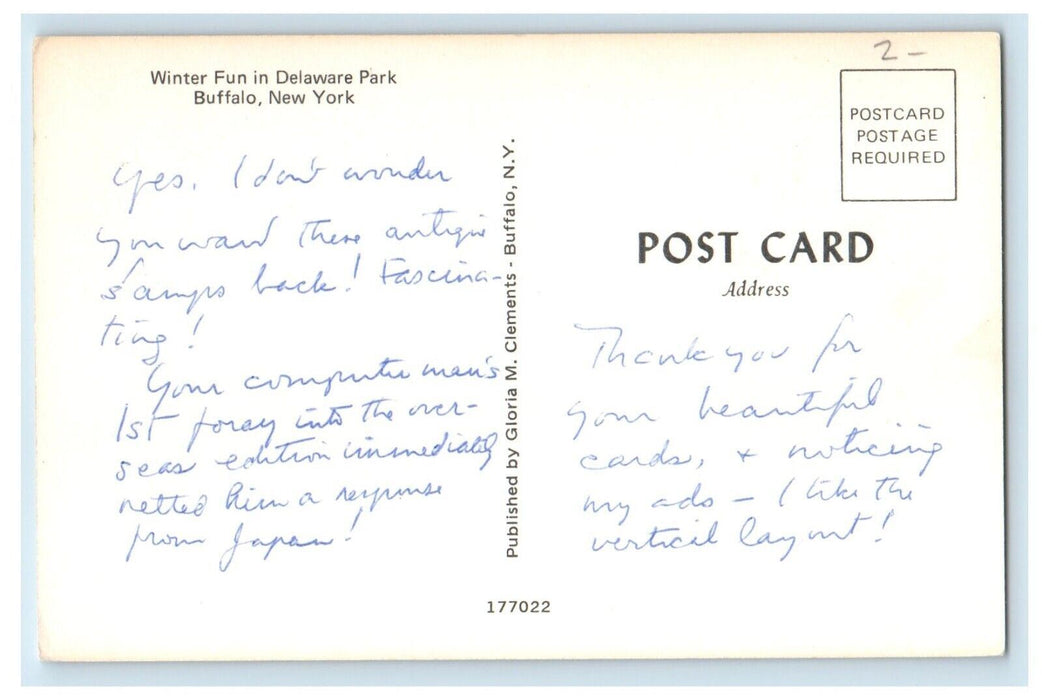 2-
Winter Fun in Delaware Park
Buffalo, New York
POSTCARD
POSTAGE
REQUIRED
Yes. I don't wonder
you want these antique
stamps back! Fascina-
ting!
Your computer man's
1st foray into the over-
seas edition immediately
netted him a response
from Japan!
Published by Gloria M. Clements - Buffalo, N.Y.
POST CARD
Address
Thank you for
your beautiful
cards, + noticing
my ads - I like the
vertical layout!
177022